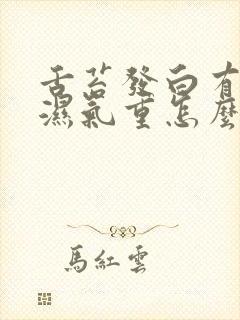 舌苔發白有
濕氣重怎麼
馬紅雲